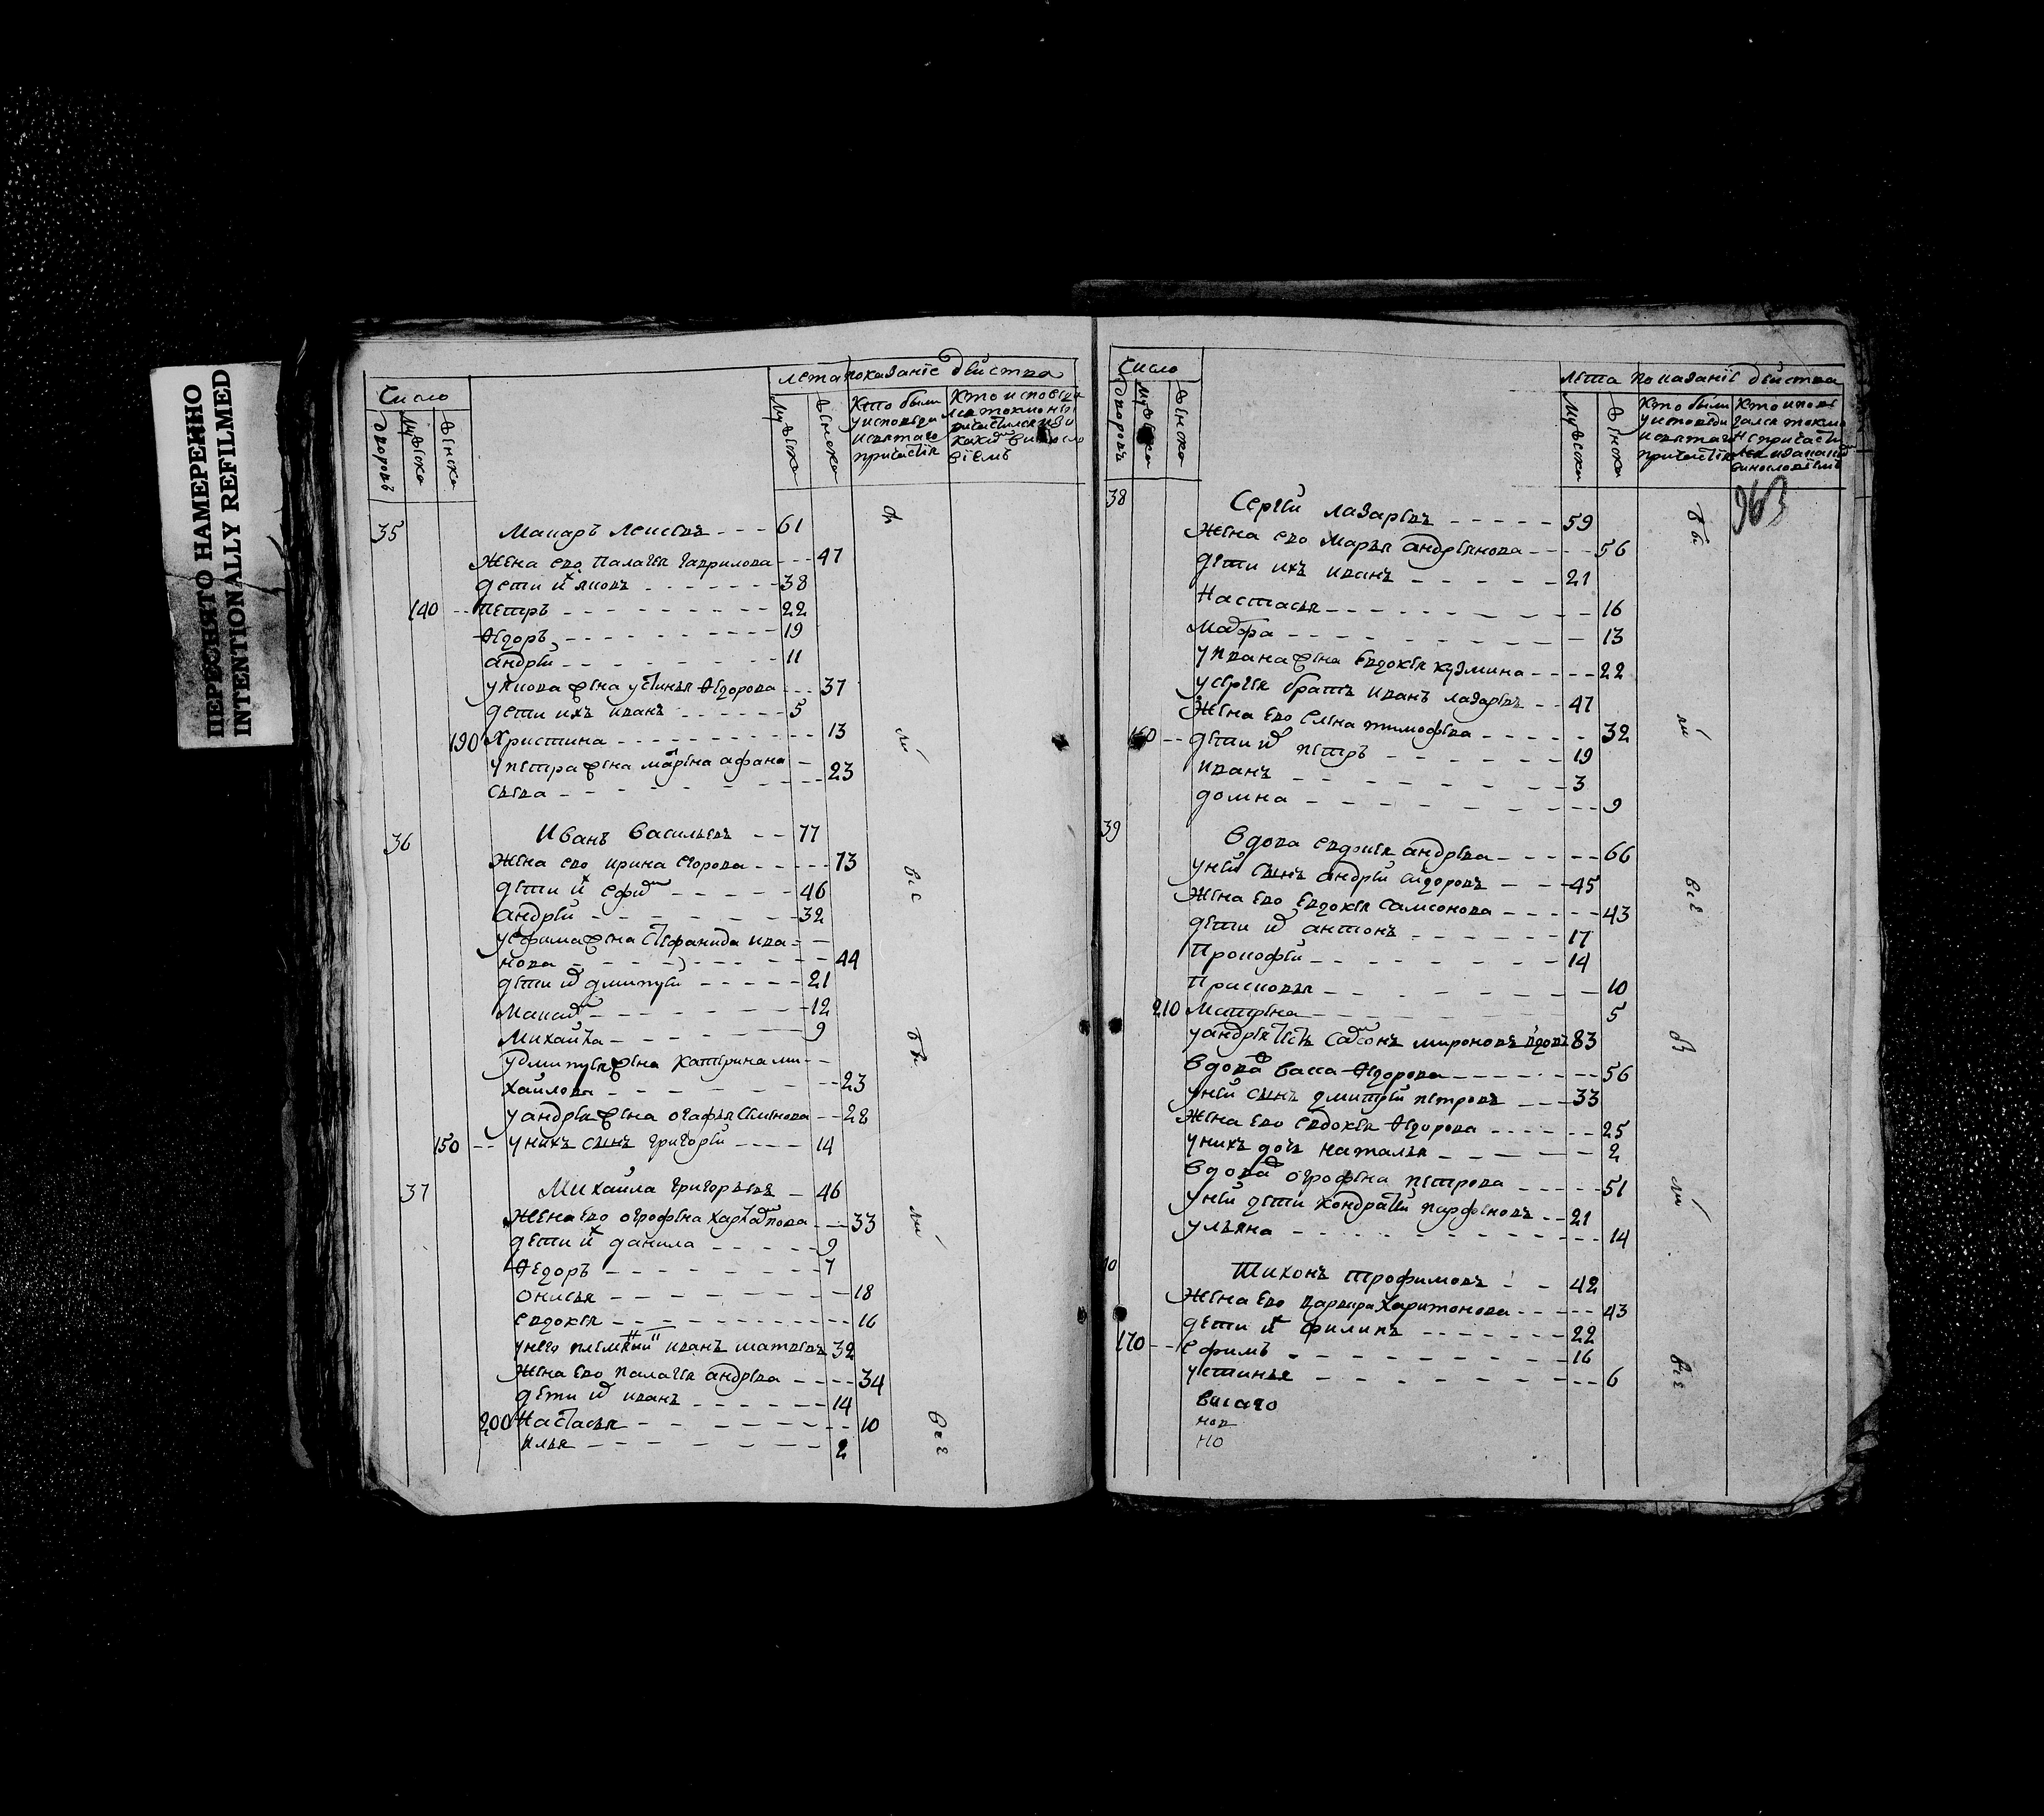 ПЕРЕСНЯТО НАМЕРЕННО
INTENTIONALLY REFILMED
Число
лета показаніе действа
дворовъ
мужеска
женска
мужеска
женска
Кто были
у исповеди
исвятаго
причастія
35 Макаръ 61
жена ево палагея гаврилова 47
дети их яковъ 38
140 петръ 22
Ѳедоръ 19
андрей 11
у якова жена устинья Ѳедорова 37
дети ихъ иванъ 5
190 Христина 13
у петра жена марина афана
сьева 23
36 Иванъ васильевъ 77
жена ево ирина егорова 73
дети их ефим 46
андрей 32
у ефима жена стефанида ива=
нова 44
дети их дмитрей 21
Макаръ 12
Михайла 9
у дмитрея жена катерина ми
хаилова 23
у андрея жена огафья семенова 28
150 у нихъ сынъ григорей 14
37 Михаила григорьевъ 46
жена ево огрофена 33
дети их данила 9
Ѳедоръ 7
онисья 18
евдокея 16
у него племянникъ иванъ матвеевъ 32
жена ево палагея андреева 34
дети их иванъ 14
200 Настасья 10
илья 2
бы
ли
все
бы
ли
все
Число
лета показаніе действа
дворовъ
мужеска
женска
мужеска
женска
Кто были
у исповеди
исвятаго
причастія
963
38 Сергей лазаревъ 59
жена ево марья андреянова 56
дети ихъ иванъ 21
Настасья 16
Мавра 13
у ивана жена евдокея кузмина 22
у сергея братъ иванъ лазаревъ 47
жена ево елена тимофеева 32
160 дети их петръ 19
иванъ 3
домна 9
39 Вдова евдокея андреева 66
у ней сынъ андрей сидоровъ 45
жена ево евдокея самсонова 43
дети их антонъ 17
Прокофей 14
Прасковья 10
210 Матрена 5
у андрея тесть самсонъ мироновъ вдовъ 83
вдова васса Ѳедорова 56
у ней сынъ дмитрей петровъ 33
жена ево евдокея Ѳедорова 25
у нихъ дочь наталья 2
вдова огрофена петрова 51
у ней дети кондратей парфеновъ 21
ульяна 14
40 Тихонъ трофимовъ 42
жена ево варвара харитонова 43
дети их филипъ 22
170 ефимъ 16
устинья 6
бы
ли
все
бы
ли
все